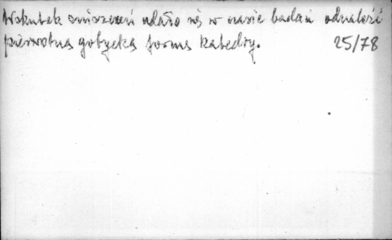 Wskutek zniszczeń udało się w czasie badań odnaleźć
pierwotną gotycką formę katedry. 25/78